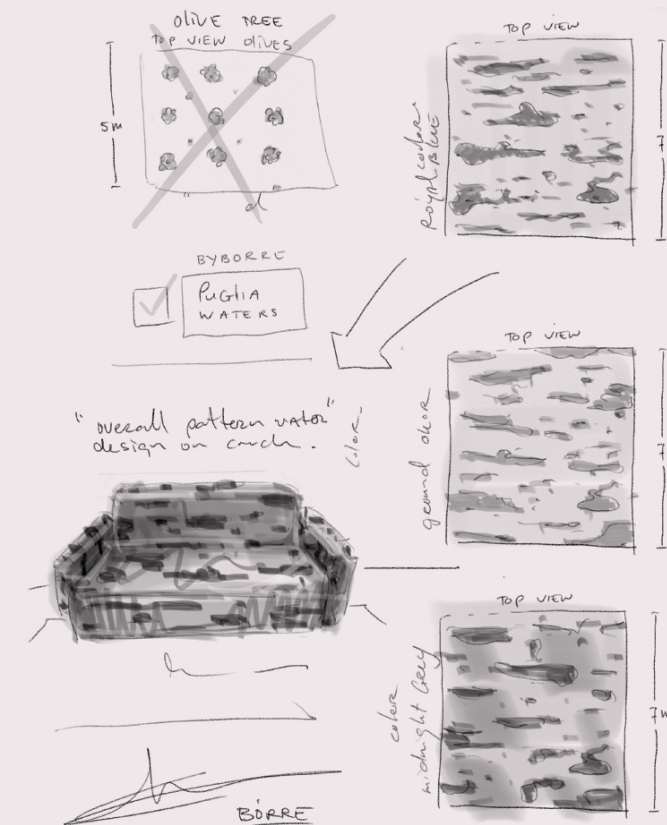 OLIVE TREE
TOP VIEW OLIVES
5m
BYBORRE
PUGLIA
WATERS
"overall pattern water"
design on couch.
color
BORRE
TOP VIEW
ROYAL BLUE
7
TOP VIEW
ground
7
TOP VIEW
color
midnight GREY
7m